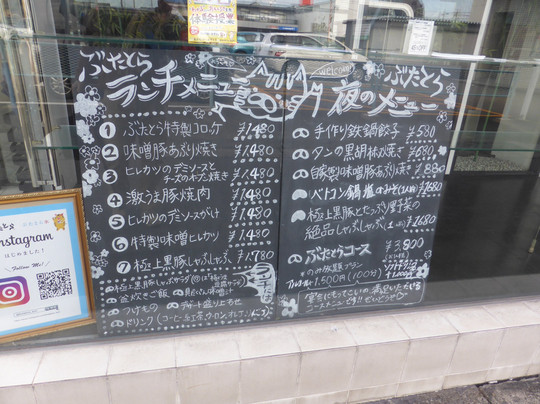 体験授業
ぶたとら
ランチメニュー
① ぶたとら特製コロッケ ¥1,480
② 味噌豚あぶり焼き ¥1,480
③ ヒレカツのデミソースと
チーズのオーブン焼き ¥1,480
④ 激うま豚焼肉 ¥1,480
⑤ ヒレカツのデミソースがけ ¥1,480
⑥ 特製味噌ヒレカツ ¥1,480
⑦ 極上黒豚しゃぶしゃぶ ¥1,780
釜炊きご飯
つけもの デザート盛り合わせ
ドリンク(コーヒー・紅茶・ウーロン・オレンジ
welcome
ぶたとら
夜のメニュー
手作り鉄鍋餃子 ¥580
タンの黒胡椒焼き ¥680
自家製味噌豚あぶり焼き ¥880
極上黒豚とたっぷり野菜の
絶品しゃぶしゃぶ ¥1,680
ぶたとらコース ¥3,800
の飲放題プラン
1,500円(100分)
Instagram
はじめました!
Follow Me!